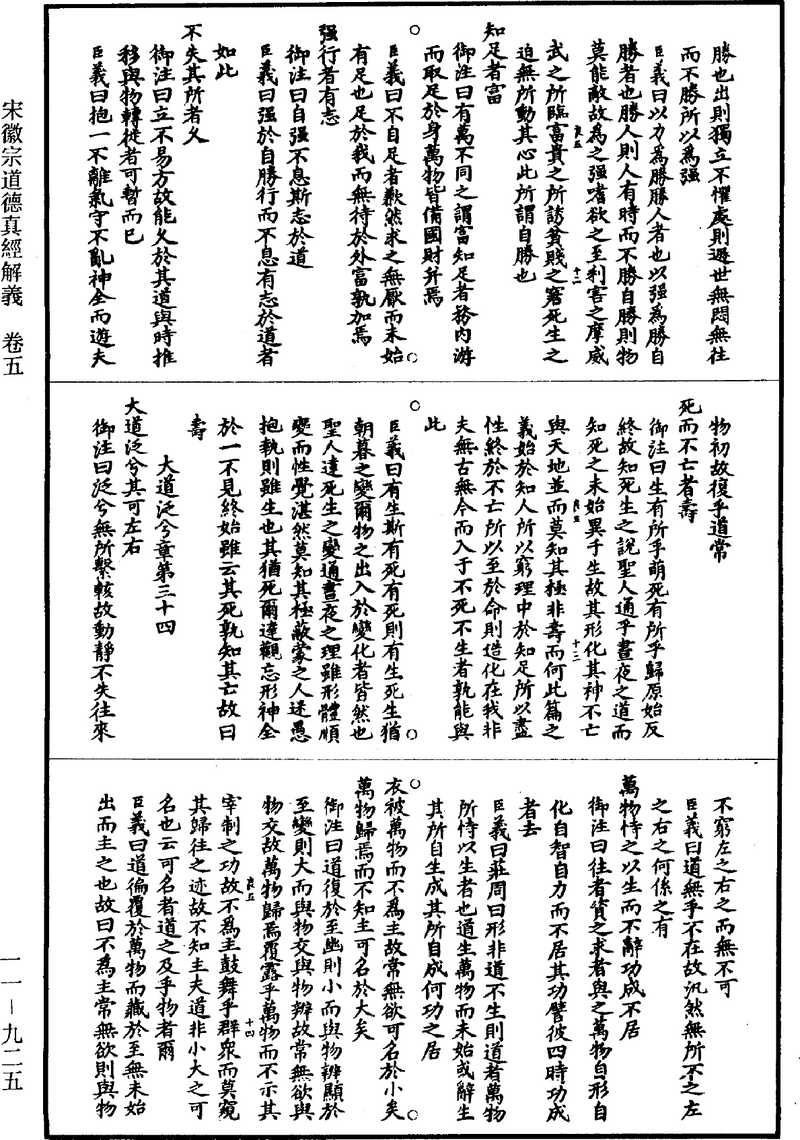 勝也出則獨立不懼處則遯世無悶無往
而不勝所以為强
臣義曰以力為勝勝人者也以强為勝自
勝者也勝人則人有時而不勝自勝則物
莫能敵故為之强嗜欲之至利害之摩威
武之所臨富貴之所誘貧賤之窘死生之
迫無所動其心此所謂自勝也
知足者富
御注曰有萬不同之謂富知足者務內游
而取足於身萬物皆備國財并焉
臣義曰不自足者歉然求之無厭而未始
有足也足於我而無待於外富孰加焉
强行者有志
御注曰自强不息斯志於道
臣義曰强於自勝行而不息有志於道者
如此
不失其所者久
御注曰立不易方故能久於其道與時推
移與物轉徙者可暫而已
臣義曰抱一不離氣守不亂神全而遊夫
良五
十二
物初故復乎道常
死而不亡者壽
御注曰生有所乎萌死有所乎歸原始反
終故知死生之說聖人通乎晝夜之道而
知死之未始異于生故其形化其神不亡
與天地並而莫知其極非壽而何此篇之
義始於知人所以窮理中於知足所以盡
性終於不亡所以至於命則造化在我非
夫無古無今而入于不死不生者孰能與
此
臣義曰有生斯有死有死則有生死生猶
朝暮之變爾物之出入於變化者皆然也
聖人達死生之變通晝夜之理雖形體順
變而性覺湛然莫知其極蔽蒙之人迷愚
抱執則雖生也其猶死爾達觀忘形神全
於一不見終始雖云其死孰知其亡故曰
壽
大道泛兮章第三十四
大道泛兮其可左右
御注曰泛兮無所繫輆故動靜不失往來
良五
十三
不窮左之右之而無不可
臣義曰道無乎不在故汎然無所不之左
之右之何係之有
萬物恃之以生而不辭功成不居
御注曰往者資之求者與之萬物自形自
化自智自力而不居其功譬彼四時功成
者去
臣義曰莊周曰形非道不生則道者萬物
所恃以生者也道生萬物而未始或辭生
其所自生成其所自成何功之居
衣被萬物而不為主故常無欲可名於小矣
萬物歸焉而不知主可名於大矣
御注曰道復於至幽則小而與物辨顯於
至變則大而與物交與物辨故常無欲與
物交故萬物歸焉覆露乎萬物而不示其
宰制之功故不為主鼓舞乎群衆而莫窺
其歸往之迹故不知主夫道非小大之可
名也云可名者道之及乎物者爾
臣義曰道徧覆於萬物而藏於至無未始
出而主之也故曰不為主常無欲則與物
良五
十四
宋徽宗道德真經解義　卷五
一一－九二五